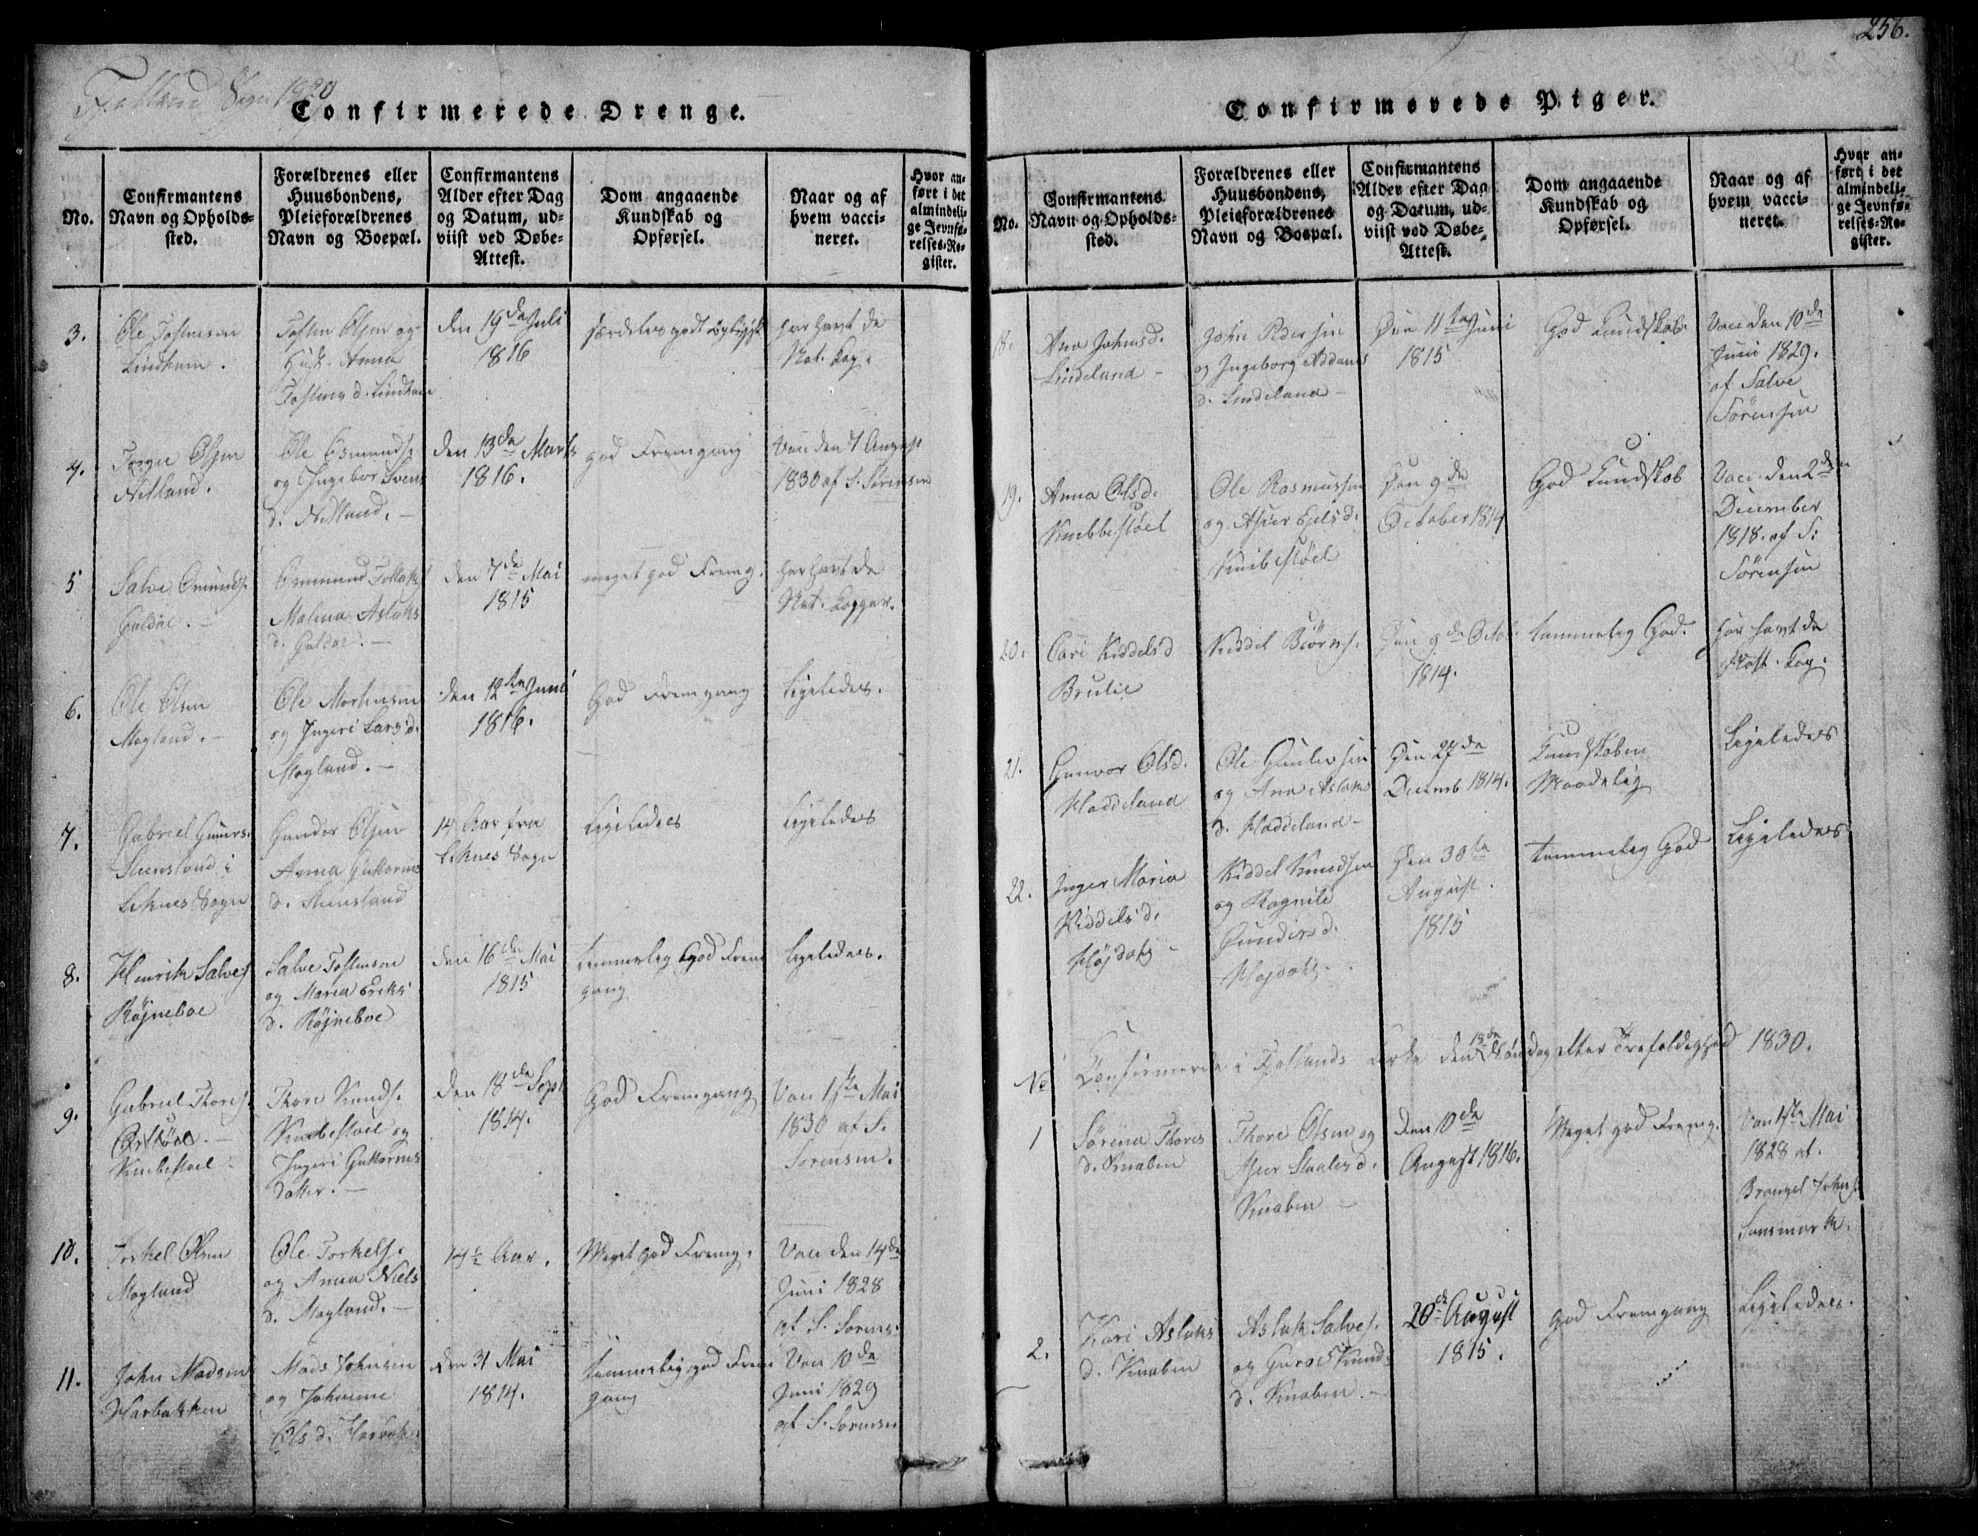 256.
Fjotland Sogn 1830
Confirmerede Drenge.
No.
Confirmantens
Navn og Opholds-
sted.
Forældrenes eller
Huusbondens,
Pleieforældrenes
Navn og Boepæl.
Confirmantens
Alder efter Dag
og Datum, ud-
viist ved Døbe-
Attest.
Dom angaaende
Kundskab og
Opførsel.
Naar og af
hvem vacci-
neret.
Hvor an-
ført i det
almindeli-
ge Jevnfø-
relses-Re-
gister.
3.
Ole Tostensen
Lindhem.
Tosten Olsen og
Anna
den 19de Juli
1816
særdeles godt
har havt de
Nat. Kop.
4.
Olsen
Netland.
Ole Osmunds.
og Ingebor Svens
d. Netland.
den 13de Marts
1816.
god Fremgang
Vac. den 7 August
1830 af S. Sørensen
5
Salve Omunds.
Omund
Malena Aslaks
d.
den 7de Mai
1815
meget god Fremg.
har havt de
Nat. Kopper.
6.
Ole Olsen
Mygland.
Ole Mortensen
og Ingeri Lars d.
Mygland.
den 12te Juni
1816.
God Fremgang
Ligeledes.
7.
Gabriel Gunders.
Steensland i
Sogn
Gunder Olsen
Anna Guttorms
d. Steensland
14 Aar fra
Sogn
Ligeledes
Ligeledes
8.
Henrik Salves.
Røjneboe
Salve Tostensen
og Maria Eriks
d. Røjneboe
den 16de Mai
1815
temmelig God Frem
gang
Ligeledes.
9.
Gabriel Thores.
Knibestoel
Thore Knuds.
Knibestoel og
Ingeri Guttorms
datter.
den 18de Sept
1814.
God Fremgang
Vac. 1ste Mai
1830 af S.
Sørensen.
10.
Torkel Olsen
Mygland
Ole Torkels.
og Anna Niels
d. Mygland.
14½ Aar.
Meget god Fremg.
Vac. den 14de
Juni 1828
af S. Sørens.
11.
John Madsen
Harbakken
Mads Johnsen
og Johanne
Ols d.
den 31 Mai
1814.
temmelig god Frem
gang
Vac. 10de
Juni 1829
af S. Sørensen
Confirmerede Piger.
No.
Confirmantens
Navn og Opholds-
sted.
Forældrenes eller
Huusbondens,
Pleieforældrenes
Navn og Boepæl.
Confirmantens
Alder efter Dag
og Datum, ud-
viist ved Døbe-
Attest.
Dom angaaende
Kundskab og
Opførsel.
Naar og af
hvem vacci-
neret.
Hvor an-
ført i det
almindeli-
ge Jevnfø-
relses-Re-
gister.
18.
Ana Johns d.
Lindeland
John Pedersen
og Ingeborg
d. Lindeland
Den 11te Juni
1815
God Kundskab.
Vac. den 10de
Juni 1829.
af Salve
Sørensen
19.
Anna Ols d.
Knibbestøel
Ole Rasmussen
og Aser
Knibestøel
Den 9de
October 1814
God Kundskab
Vac. den 2den
December
1818. af S:
Sørensen
20.
Cari Kiddels d
Brulie
Kiddel Biørns.
Den 9de Octob.
1814.
temmelig God.
har havt de
Kop.
21.
Gunvor Ols d.
Haddeland
Ole Gunlevsen
og Ana Aslaks
d. Haddeland
Den 27de
Decemb 1814.
Kundskaben
Maadelig
Ligeledes
22.
Inger Maria
Kiddels d.
Kiddel Knudsen
og Ragnile
Gunders d.
Den 30te
August.
1815
temmelig God
Ligeledes
No
Confirmerede i Fjotlands Kirke den 18de Søndag efter Trefoldighed 1830.
1
Sørena Thores
d. Knaben
Thore Olsen og
Aser
Knaben
Den 10de
August 1816.
Meget god Fremg.
Vac. Mai
1828 af.
John
2.
Kari Aslaks
d. Knaben
Aslak Salves.
og Guroe Knuds
d. Knaben.
20de August
1815.
god Fremgang
Ligeledes.